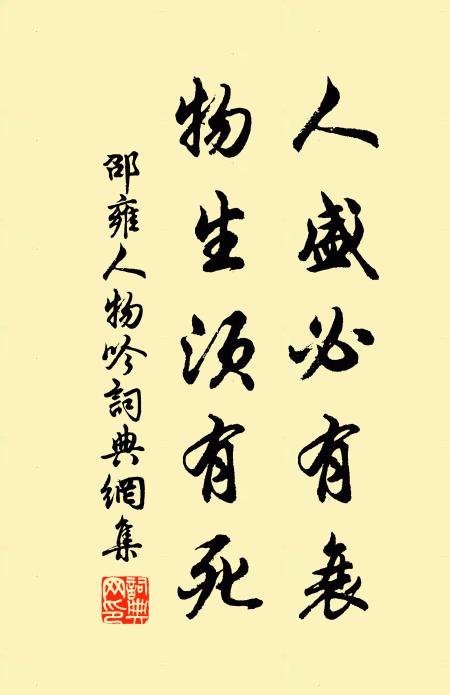 人盛必有衰
物生須有死
邵雍人物吟詞典網集
詞典網印